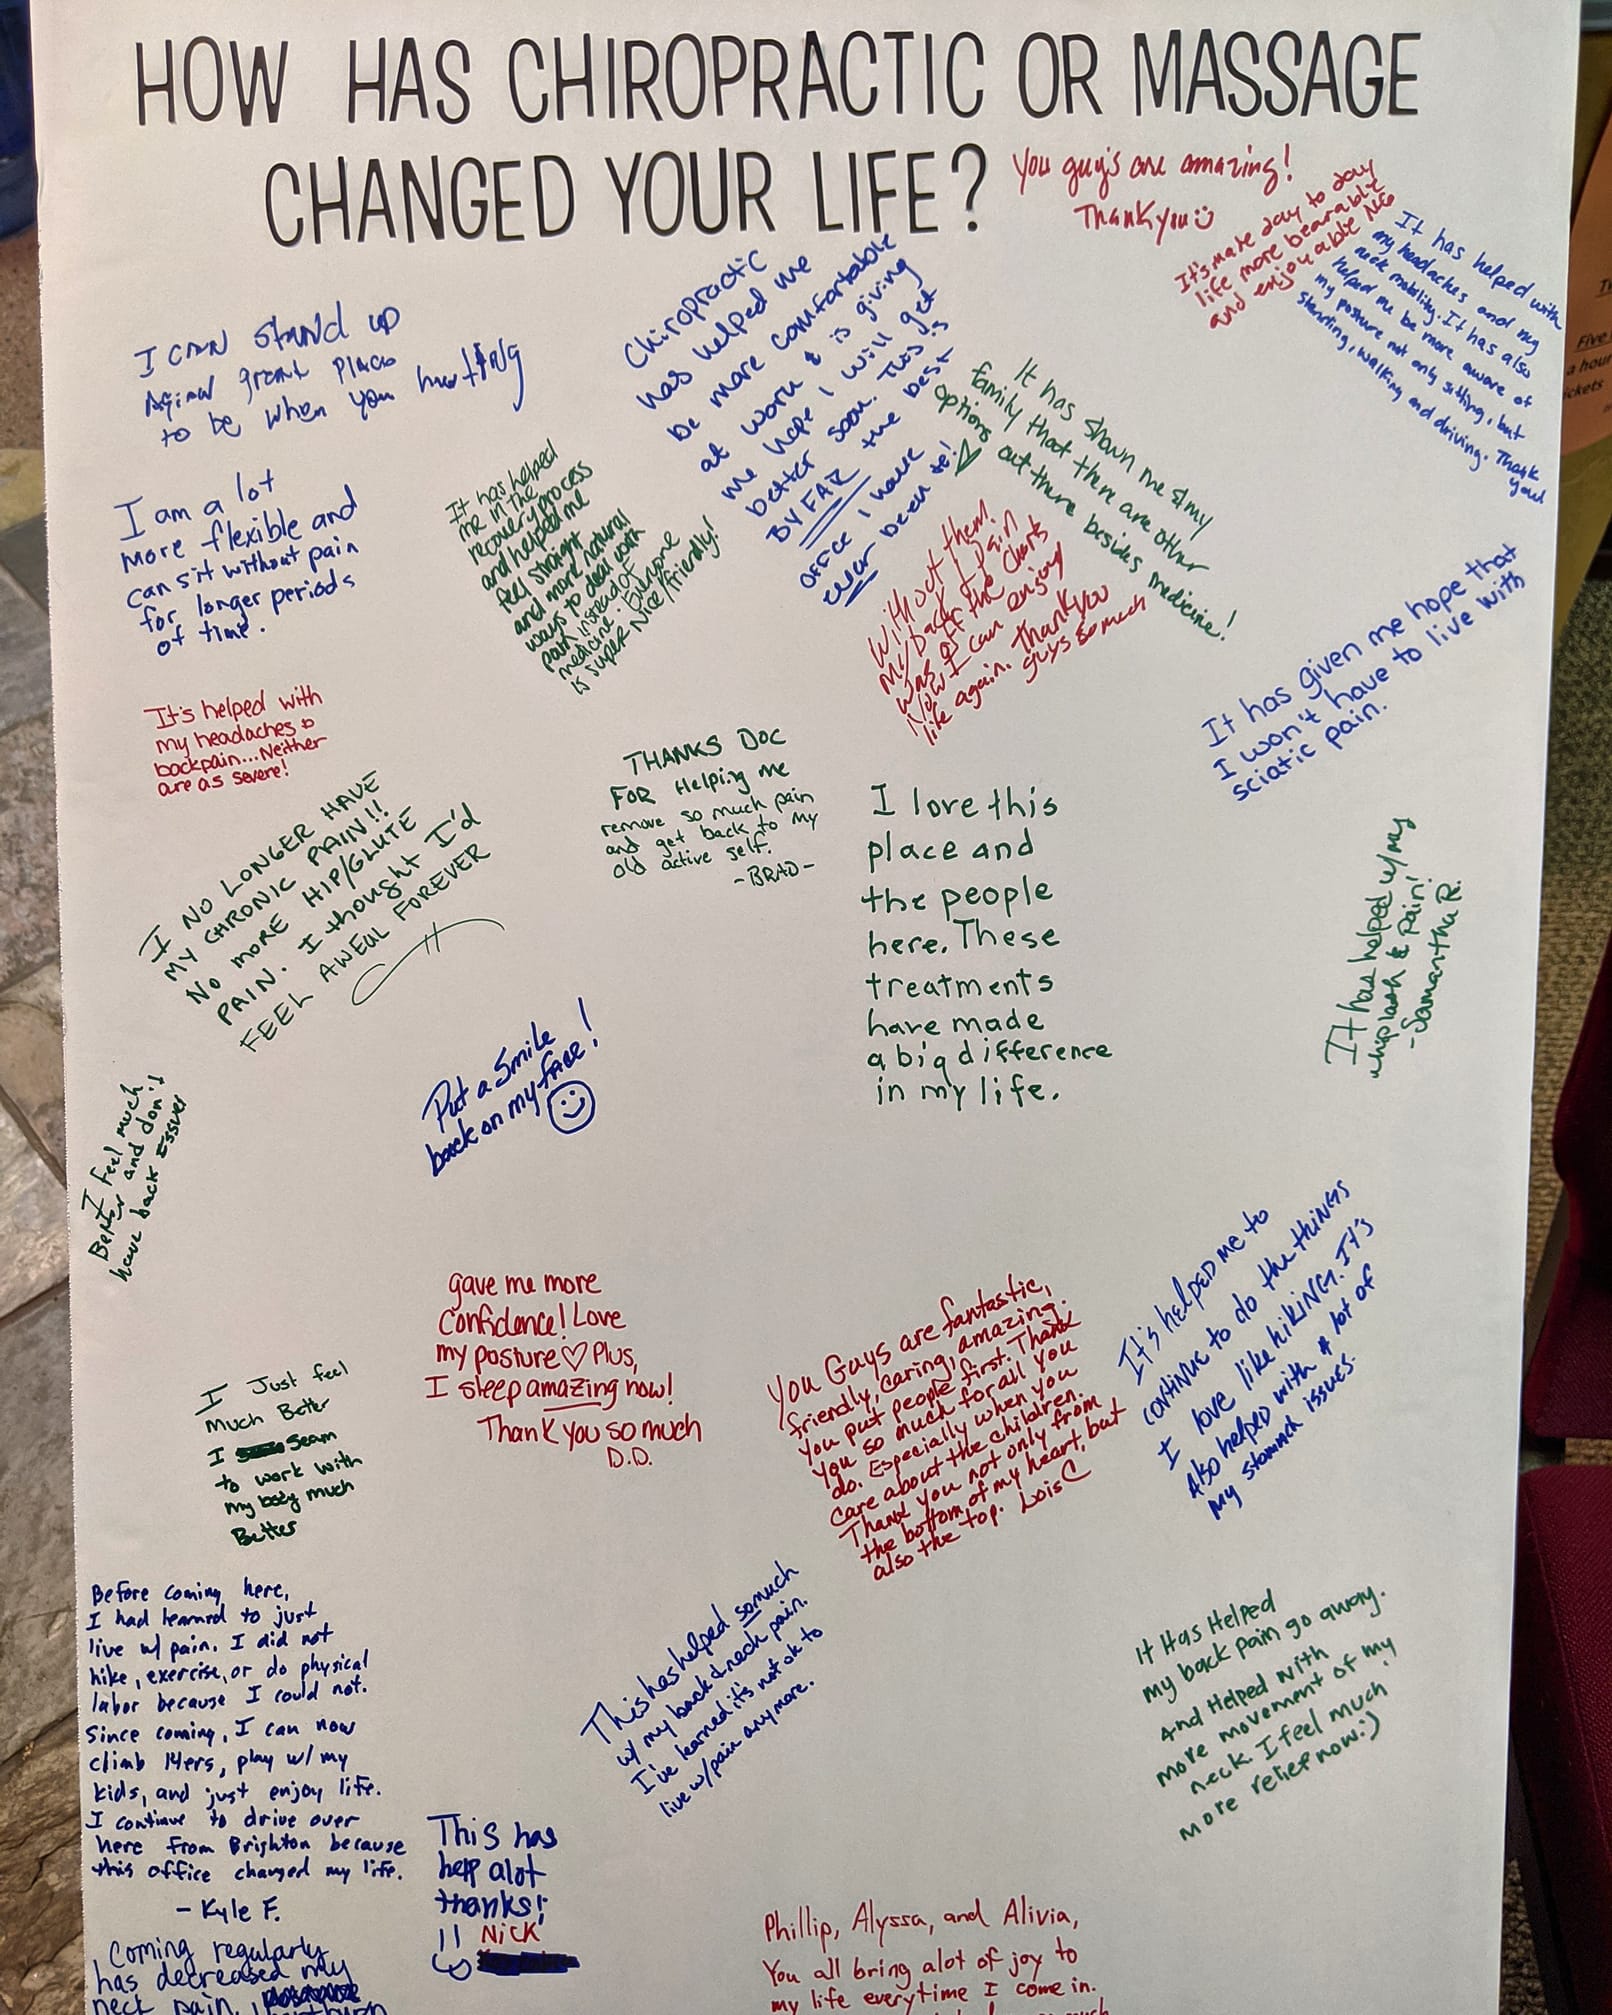 HOW HAS CHIROPRACTIC OR MASSAGE
CHANGED YOUR LIFE?
You guy's are amazing!
Thank you
It's made day to day
life more bearable
and enjoyable
It has helped with
my headaches and my
neck mobility. It has also
helped me be more aware of
my posture not only sitting, but
standing, walking and driving. Thank
you!
I can stand up
Again great place
to be when you hurting
Chiropractic
has helped me
be more comfortable
at work & is giving
me hope I will get
better soon. This is
BY FAR the best
OFFICE I have
ever been to!
It has shown me & my
family that there are other
options out there besides medicine!
I am a lot
more flexible and
can sit without pain
for longer periods
of time.
It has helped
me in the
recovery process
and helped me
feel straight
and more natural
ways to deal with
pain instead of
medicine. Everyone
is super nice/friendly!
Without them
My back pain
was off the charts
Now I can enjoy
life again. Thank you
guys so much
It has given me hope that
I won't have to live with
sciatic pain.
It's helped with
my headaches &
backpain...Neither
are as severe!
THANKS DOC
FOR Helping me
remove so much pain
and get back to my
old active self.
-BRAD-
I NO LONGER HAVE
MY CHRONIC PAIN!!
NO MORE HIP/GLUTE
PAIN. I thought I'd
FEEL AWFUL FOREVER
I love this
place and
the people
here. These
treatments
have made
a big difference
in my life.
It has helped w/ my
whiplash & pain!
-Samantha R.
Put a smile
back on my face!
I feel much
Better and don't
have back Issues
gave me more
confidence! Love
my posture ♡ Plus,
I sleep amazing now!
Thank you so much
D.D.
You Guys are fantastic,
friendly, caring, amazing.
You put people first. Thank
you so much for all you
do. Especially when you
care about the children.
Thank you not only from
the bottom of my heart, but
also the top. Lois C
It's helped me to
continue to do the things
I love like hiking. It's
Also helped with a lot of
my stomach issues.
I Just feel
much Better
I Seam
to work with
my body much
Better
Before coming here,
I had learned to just
live w/ pain. I did not
hike, exercise, or do physical
labor because I could not.
Since coming, I can now
climb 14ers, play w/ my
kids, and just enjoy life.
I continue to drive over
here from Brighton because
this office changed my life.
- Kyle F.
This has helped so much
w/ my back & neck pain.
I've learned it's not ok to
live w/ pain anymore.
It Has Helped
my back pain go away.
And Helped with
more movement of my
neck. I feel much
more relief now:)
This has
help alot
thanks!
Nick
Coming regularly
has decreased my
neck pain,
Phillip, Alyssa, and Alivia,
You all bring alot of joy to
my life everytime I come in.